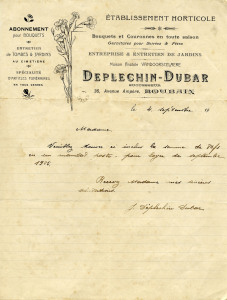 ABONNEMENT
pour BOUQUETS
ENTRETIEN
de TOMBES & JARDINS
AU CIMETIÈRE
SPÉCIALITÉ
D'ARTICLES FUNÉRAIRES
EN TOUS GENRES
ÉTABLISSEMENT HORTICOLE
Bouquets et Couronnes en toute saison
Garnitures pour Soirées & Fêtes
ENTREPRISE & ENTRETIEN DE JARDINS
Maison
DEPLECHIN-DUBAR
36, Avenue Ampère, ROUBAIX
le 4 septembre 19
Madame
Veuillez trouver ci inclus la somme de
en un mandat poste pour loyer de septembre
1916
Recevez Madame mes sincères
J. Deplechin Dubar